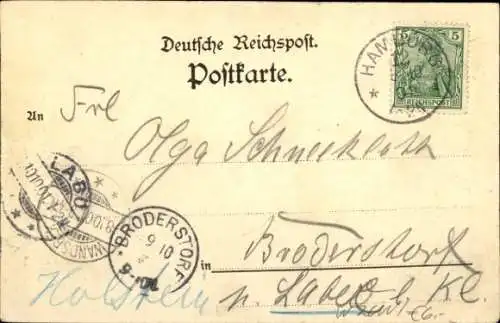 Deutsche Reichspost.
Postkarte.
HAMBURG
5 5
REICHSPOST
An Frl
Olga Schneekloth
LABÖ
WANDSB
BRODERSTORF
9
10
in Broderstorf
Holstein p. Laboe b. Kl.